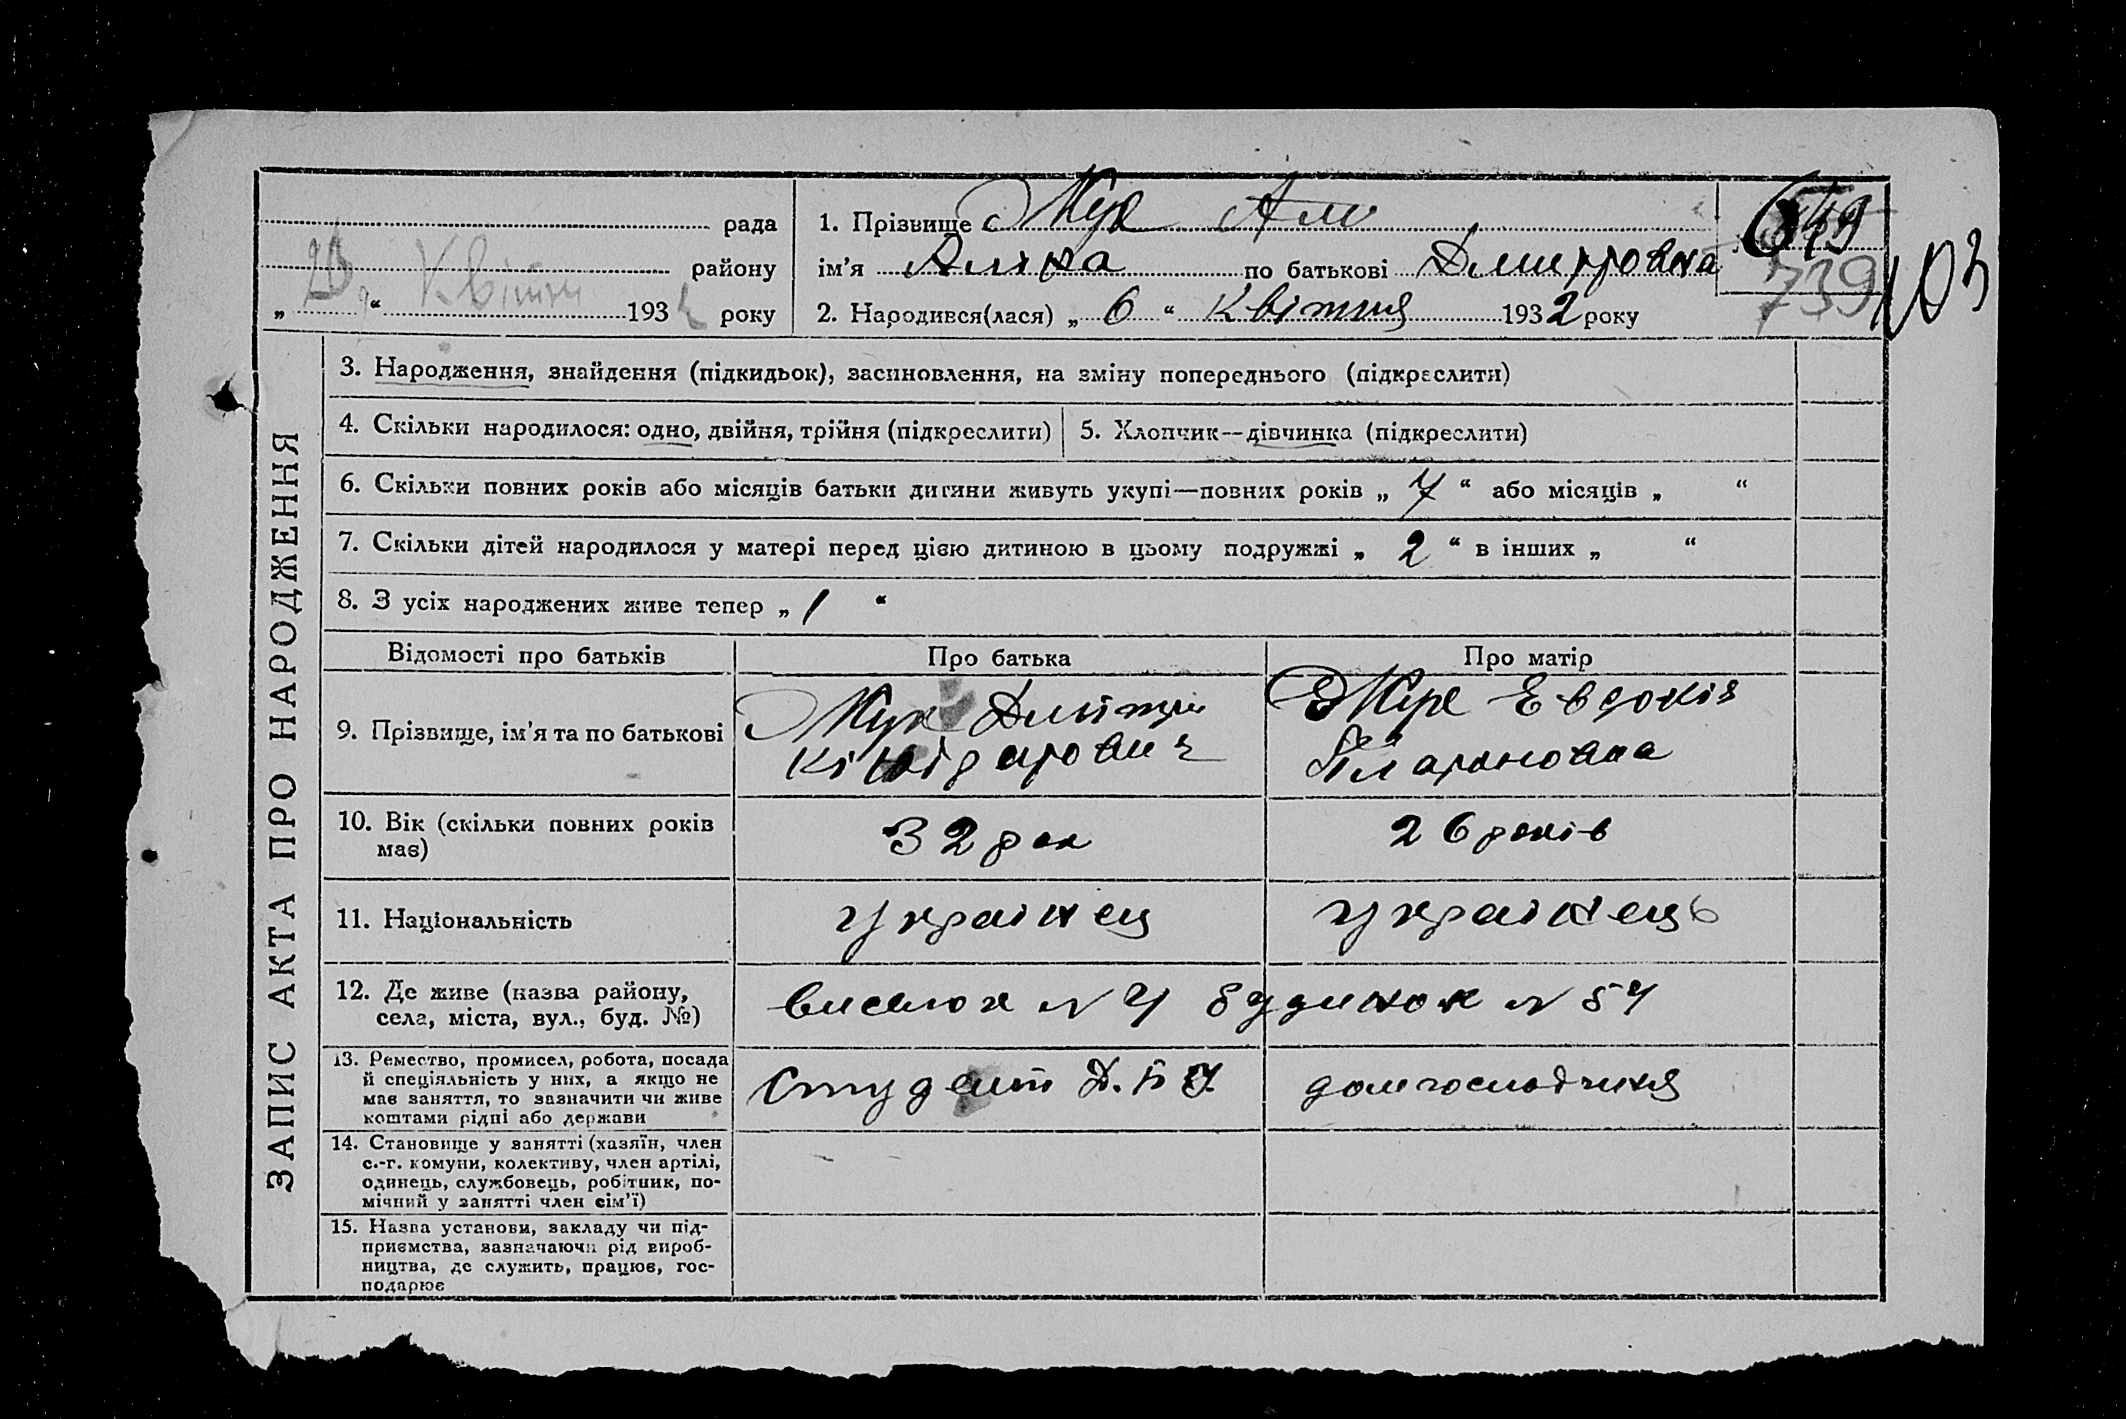 рада
району
„ 20 “ Квітня 1932 року
1. Прізвище Жук
ім’я Аліна по батькові Дмитровна
2. Народився(лася) „ 6 “ Квітня 1932 року
649
739
103
ЗАПИС АКТА ПРО НАРОДЖЕННЯ
3. Народження, знайдення (підкидьок), засиновлення, на зміну попереднього (підкреслити)
4. Скільки народилося: одно, двійня, трійня (підкреслити)
5. Хлопчик—дівчинка (підкреслити)
6. Скільки повних років або місяців батьки дитини живуть укупі—повних років „ 7 “ або місяців „ “
7. Скільки дітей народилося у матері перед цією дитиною в цьому подружжі „ 2 “ в інших „ “
8. З усіх народжених живе тепер „ 1 “
Відомості про батьків
Про батька
Про матір
9. Прізвище, ім’я та по батькові
Жук Дмитрий
Жук Евдокія
Платоновна
10. Вік (скільки повних років
має)
32 рок
26 років
11. Національність
українец
українець
12. Де живе (назва району,
села, міста, вул., буд. №)
виселок N 4 будинок N 54
13. Ремество, промисел, робота, посада
й спеціяльність у них, а якщо не
має заняття, то зазначити чи живе
коштами рідні або держави
Студент
домгосподчиня
14. Становище у занятті (хазяїн, член
с.-г. комуни, колективу, член артілі,
одинець, службовець, робітник, по-
мічний у занятті член сім’ї)
15. Назва установи, закладу чи під-
приємства, зазначаючи рід вироб-
ництва, де служить, працює, гос-
подарює